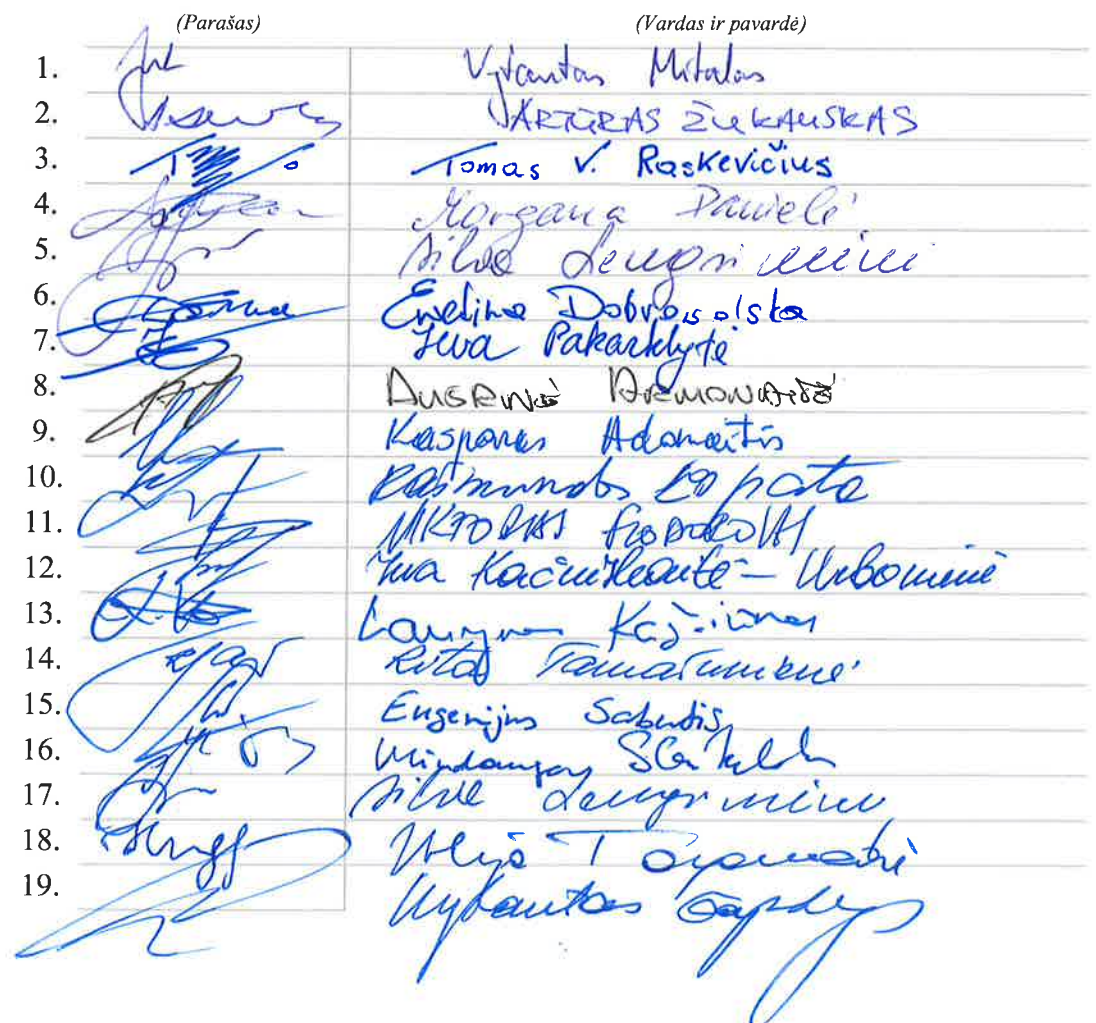 (Parašas) (Vardas ir pavardė)
1. Vytautas Mitalas
2. ARTŪRAS ŽUKAUSKAS
3. Tomas V. Raskevičius
4. Morgana Danielė
5. Silva Lengvinienė
6. Ewelina Dobrowolska
7. Ieva Pakarklytė
8. AUŠRINĖ ARMONAITĖ
9. Kasparas Adomaitis
10. Raimundas Lopata
11. VIKTORAS FIODOROVAS
12. Ieva Kačinskaitė - Urbonienė
13. Laurynas Kasčiūnas
14. Rita Tamašunienė
15. Eugenijus Sabutis
16. Mindaugas
17. Silva Lengvinienė
18.
19. Vytautas